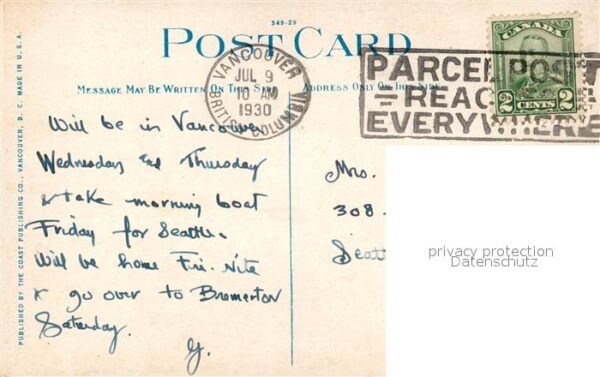 349-29
POST CARD
MESSAGE MAY BE WRITTEN ON THIS SIDE
ADDRESS ONLY ON THIS SIDE
VANCOUVER
JUL 9
10 AM
1930
BRITISH COLUMBIA
PARCEL POST
REAC
EVERYWHERE
CANADA
2 CENTS 2
PUBLISHED BY THE COAST PUBLISHING CO., VANCOUVER, B. C. MADE IN U. S. A.
Will be in Vancouver
Wednesday and Thursday
& take morning boat
Friday for Seattle.
Will be home Fri. Nite
& go over to Bremerton
Saturday.
Y.
Mrs.
308
Seatt
privacy protection
Datenschutz